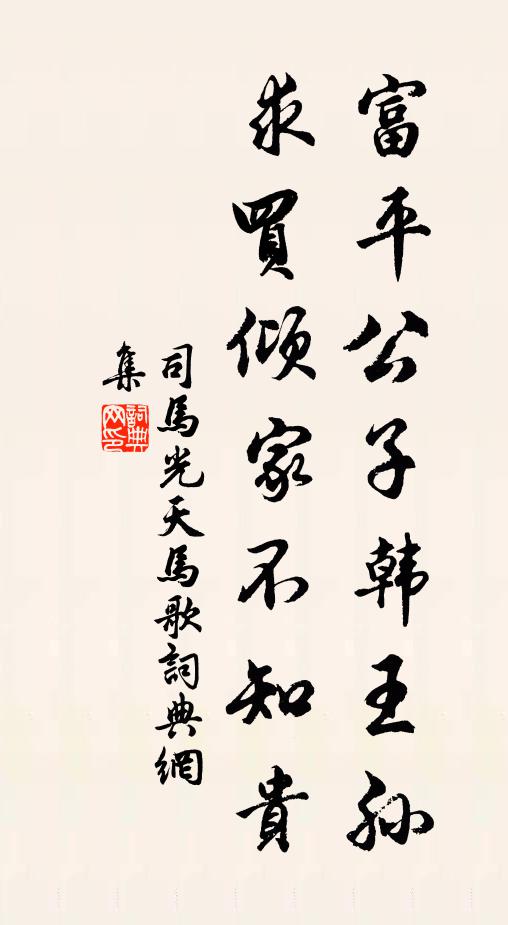 富平公子韩王孙
求買傾家不知貴
司馬光天馬歌詞典網
集
詞典
网印